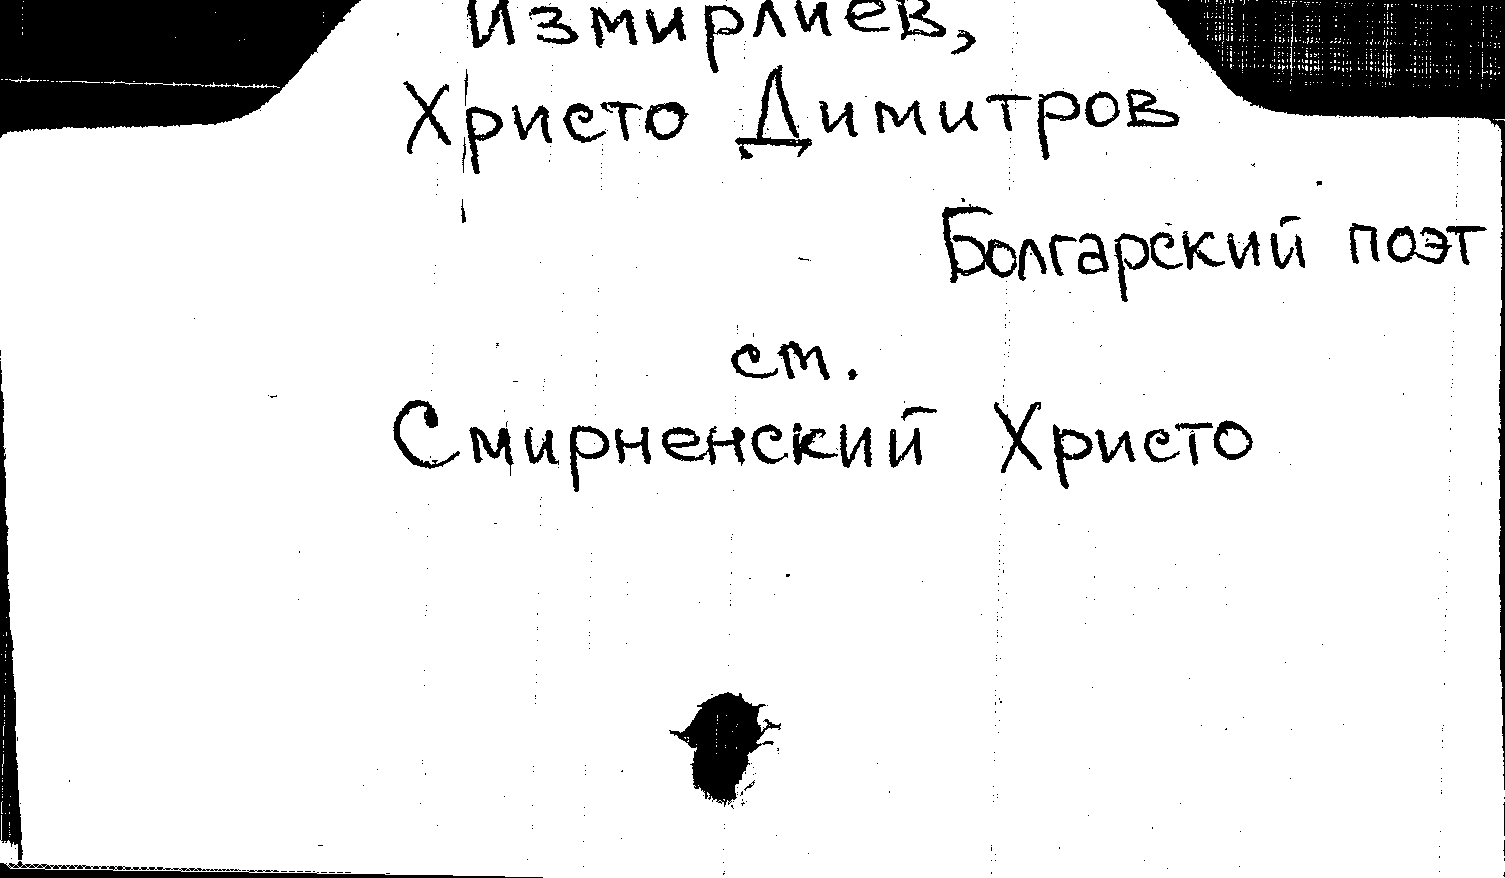 Измирлиев,
Христо Димитров
Болгарский поэт
см.
Смирненский Христо